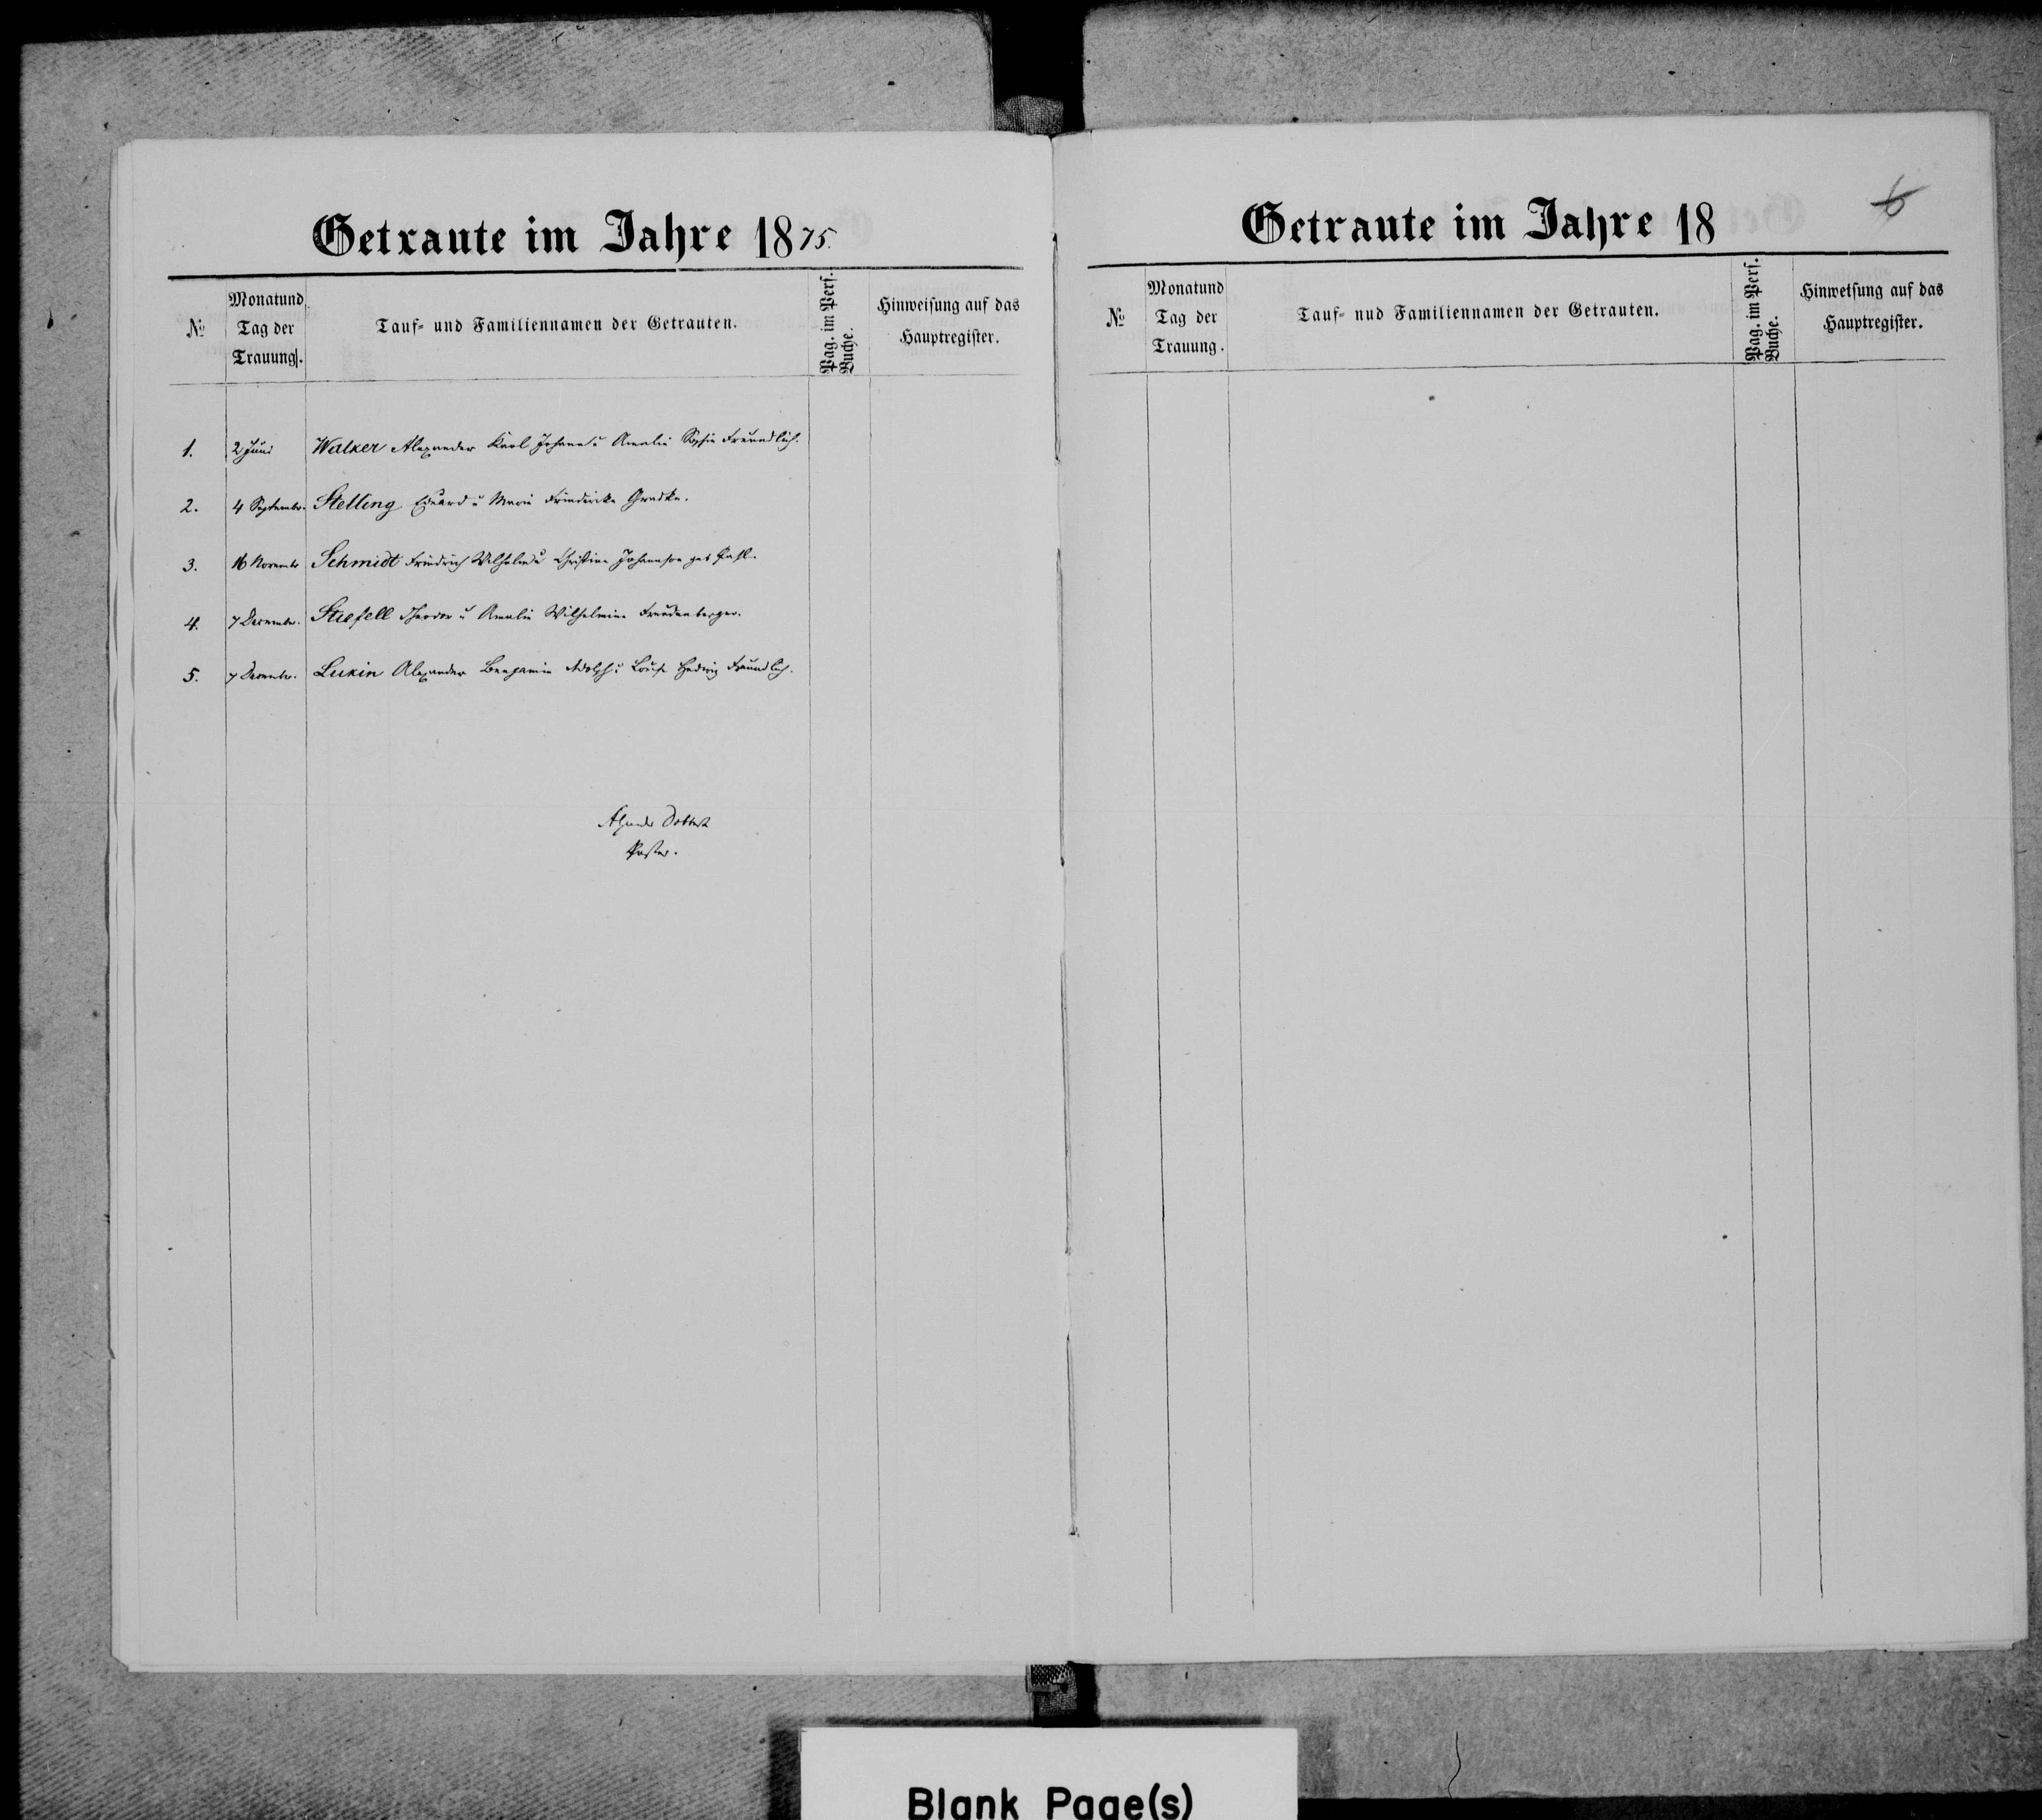 Getraute im Jahre 1875.
№
Monat und
Tag der
Trauung.
Tauf- und Familiennamen der Getrauten.
Pag. im Pers.
Buche.
Hinweisung auf das
Hauptregister.
1. 2 Juni Walker Alexander Karl Johann u Amalie Sophie Freundlich.
2. 4 September. Stelling Eduard u Marie Friedericke
3. 16 Novembr Schmidt Friedrich Wilhelm u Christine Johannson geb
4. 7 December. Stiefell Theodor u Amalie Wilhelmine Freudenberger.
5. 7 December. Lukin Alexander Benjamin Adolph u Louise Hedwig Freundlich.
Pastor.
Getraute im Jahre 18
6
№
Monat und
Tag der
Trauung.
Tauf- nud Familiennamen der Getrauten.
Pag. im Pers.
Buche.
Hinweisung auf das
Hauptregister.
Blank Page(s)